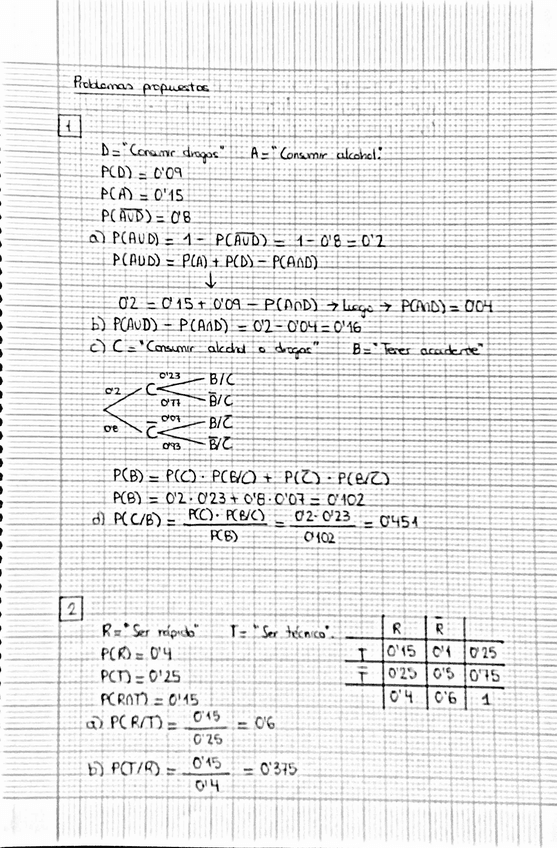 Problemas propuestos
1
D = "Consumir drogas" A = "Consumir alcohol."
P(D) = 0'09
P(A) = 0'15
P(A̅U̅D̅) = 0'8
a) P(AUD) = 1 - P(A̅U̅D̅) = 1 - 0'8 = 0'2
P(AUD) = P(A) + P(D) - P(A∩D)
↓
0'2 = 0'15 + 0'09 - P(A∩D) → Luego → P(A∩D) = 0'04
b) P(AUD) - P(A∩D) = 0'2 - 0'04 = 0'16
c) C = "Consumir alcohol o drogas" B = "Tener accidente"
0'2 C 0'23 B/C
0'77 B̅/C
0'8 C̅ 0'07 B/C̅
0'93 B̅/C̅
P(B) = P(C) · P(B/C) + P(C̅) · P(B/C̅)
P(B) = 0'2 · 0'23 + 0'8 · 0'07 = 0'102
d) P(C/B) = P(C) · P(B/C) / P(B) = 0'2 · 0'23 / 0'102 = 0'451
2
R = "Ser rápido" T = "Ser técnico".
P(R) = 0'4
P(T) = 0'25
P(R∩T) = 0'15
R R̅
T 0'15 0'1 0'25
T̅ 0'25 0'5 0'75
0'4 0'6 1
a) P(R/T) = 0'15 / 0'25 = 0'6
b) P(T/R) = 0'15 / 0'4 = 0'375